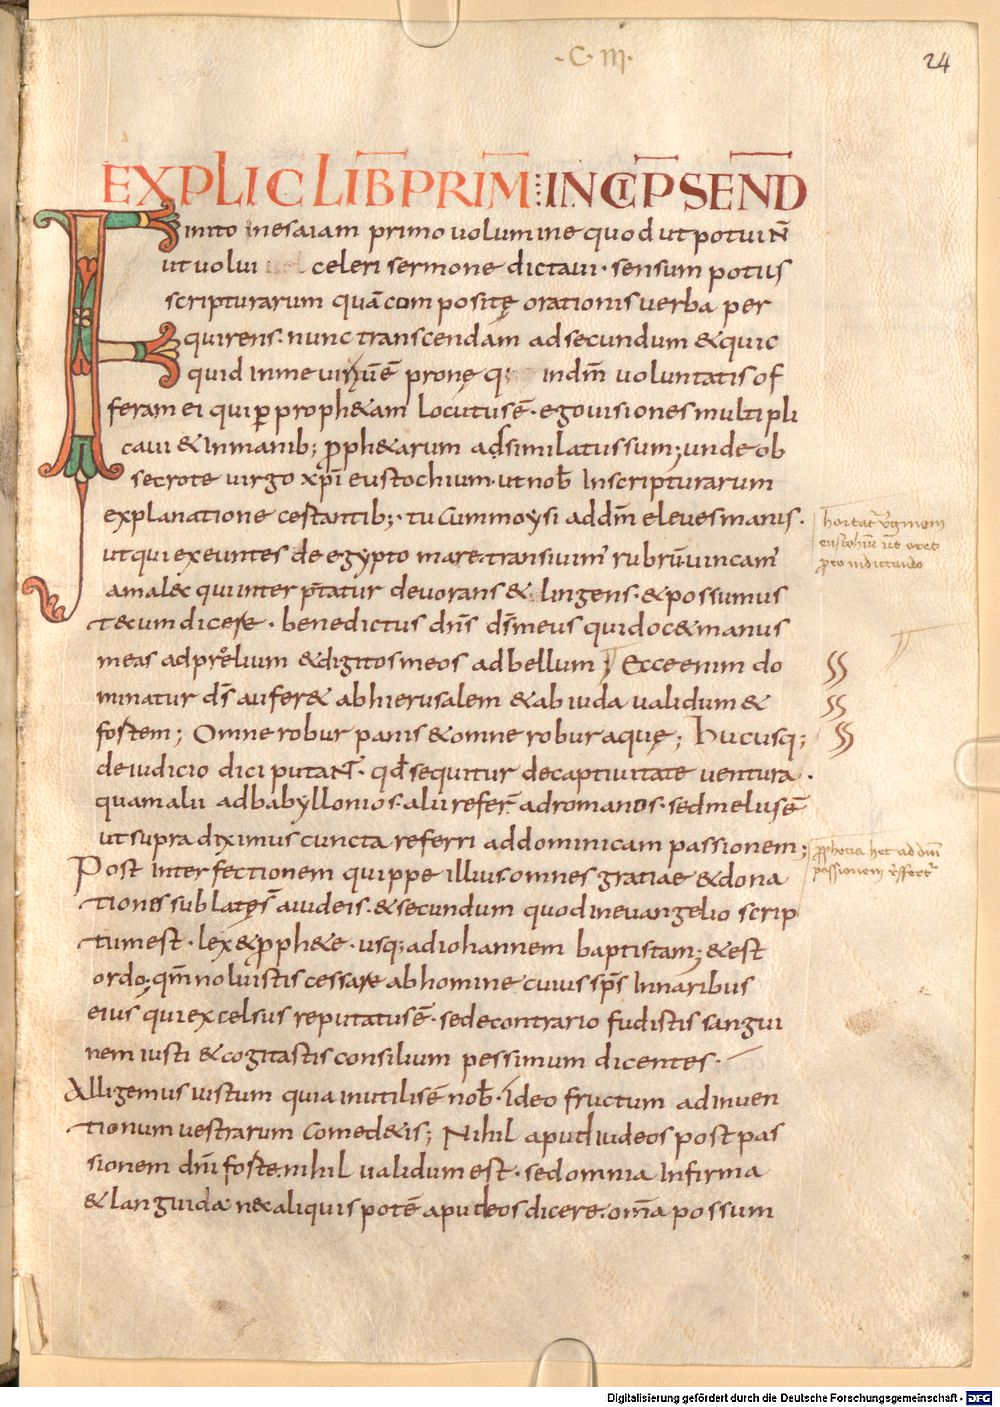 ·C·III·
24
EXPLIC LIB̅ PRIM̅ : INCIP̅ SEN̅D
Finito inesaiam primo uolumine quod ut potui N̅
ut uolui celeri sermone dictaui · sensum potius
scripturarum quā compositę orationis uerba per
quirens · nunc transcendam ad secundum & quic
quid in me uirium ē pronę q; indm̅ uoluntatis of
feram ei qui ꝑ proph&am locutus ē · ego uisiones multipli
caui & In manib; ꝓph&arum adsimilatus sum; unde ob
secro te uirgo xp̅i eustochium · ut nob̅ Inscripturarum
explanatione certantib; · tu Cum moysi ad dm̅ eleues manus ·
ut qui exeuntes de egypto mare transiuim' rubrū uincam'
amalec qui inter p̅tatur deuorans & lingens · & possumus
tecum dicere · benedictus dn̅s ds̅ meus qui doc& manus
meas ad pręlium & digitos meos ad bellum ; Ecce enim do
minatur ds̅ aufer& ab hierusalem & ab iuda ualidum &
fortem ; Omne robur panis & omne robur aquę ; hucusq;
de iudicio dici putaNT · qd̅ sequitur de captiuitate uentura ·
quam alii ad babyllonios · alii refer̅ ad romanos · sed melius ē
ut supra diximus cuncta referri ad dominicam passionem ;
Post Interfectionem quippe illius omnes gratiae & dona
tiones sublatę s̅ a iudeis · & secundum quod in euangelio scrip
tum est · lex & ꝓph&e · usq; ad iohannem baptistam; & est
ordo · qm̅ noluistis cessare ab homine cuius sp̅s In naribus
eius qui excelsus reputatus ē · sed e contrario fudistis sangui
nem iusti & cogitastis consilium pessimum dicentes ·
Alligemus iustum quia inutilis ē nob̅ · ideo fructum adinuen
tionum uestrarum Comed&is ; Nihil apud iudeos post pas
sionem dn̅i forte · nihil ualidum est · sed omnia Infirma
& languida · nec aliquis potē apud eos dicere · om̅a possum
hortat̉ v̉ginem
eustochiū ut oret
ꝓ eo in dictando
ꝓphetia hec ad dn̅m
passionem r̉ffert̉
Digitalisierung gefördert durch die Deutsche Forschungsgemeinschaft - DFG